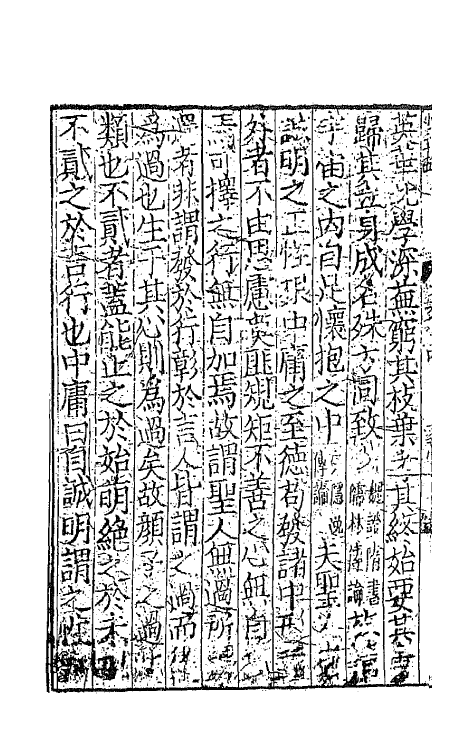 英華北學深蕪窮其枝葉考其終始要其會
歸其立身成名殊方同致 魏證隋書儒林傳論
宇宙之内自足懷抱之中 夫聖
誠明之正性根中庸之至德苟發諸中形
外者不由思慮莫匪規矩不善之心無自
焉可擇之行無自加焉故謂聖人無過所
者非謂發於行彰於言人皆謂之過而後
爲過也生于其心則爲過矣故顔子之過
類也不貳者蓋能止之於始萌絶之於未
不貳之於言行也中庸曰自誠明謂之性